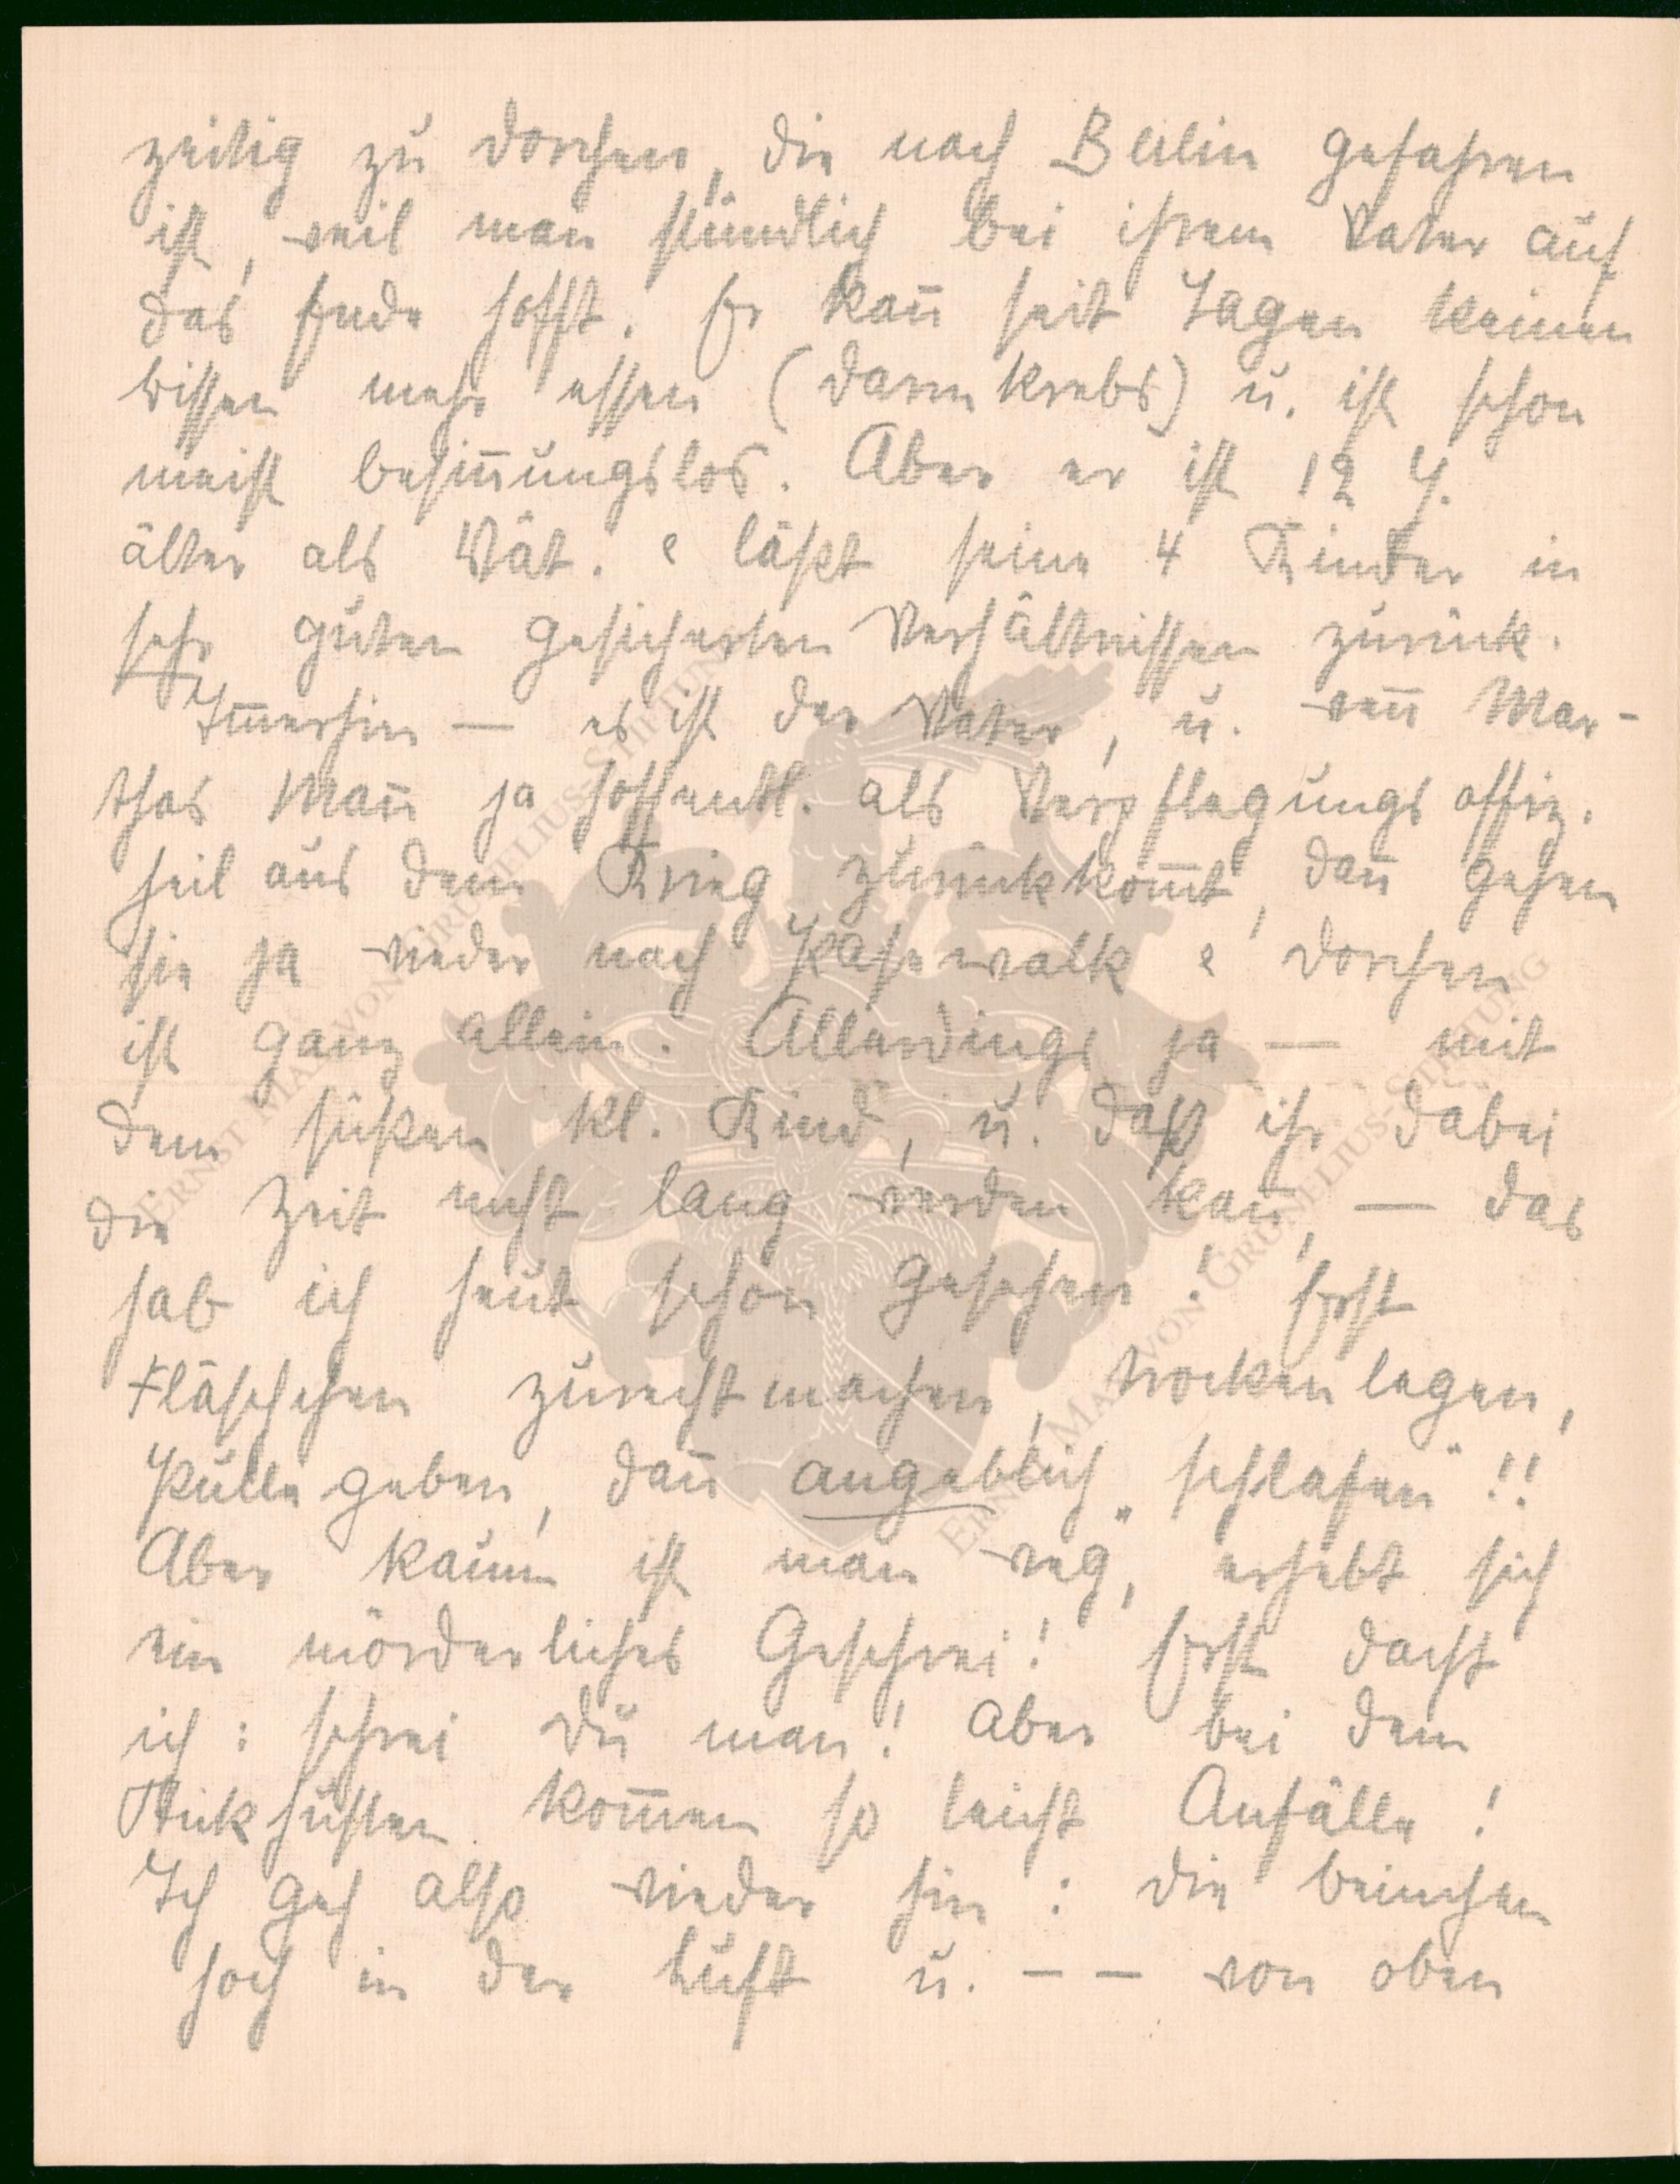 zeitig zu Dorchen, die nach Berlin gefahren
ist, weil man stündlich bei ihrem Vater auf
das Ende hofft. Er kañ seit Tagen keinen
bissen mehr essen (Darmkrebs) u. ist schon
meist besiñungslos. Aber er ist 12 J.
älter als Vät. & läßt seine 4 Kinder in
sehr guten gesicherten Verhältnissen zurück.
Im̃erhin — es ist der Vater, u. weñ Mar-
thas Mañ ja hoffentl. als Verpflegungsoffiz.
heil aus dem Krieg zurückkom̃t, dañ gehen
sie ja wieder nach Pasewalk & Dorchen
ist ganz allein. Allerdings ja — mit
dem süßen kl. Kind, u. daß ihr dabei
die Zeit nicht lang werden kañ, — das
hab ich heut schon gesehen! Erst
Fläschchen zurechtmachen, trocken legen,
Pulle geben, dañ angeblich „schlafen“!!
Aber kaum ist man weg, erhebt sich
ein mörderliches Geschrei! Erst dacht
ich: schrei du man! Aber bei dem
Stickhusten kom̃en so leicht Anfälle!
Ich geh also wieder hin: die beinchen
hoch in der Luft u. — — von oben
ERNST MAX VON GRUNELIUS-STIFTUNG
ERNST MAX VON GRUNELIUS-STIFTUNG